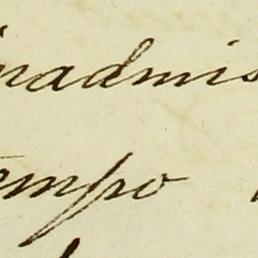 inadmis
empo